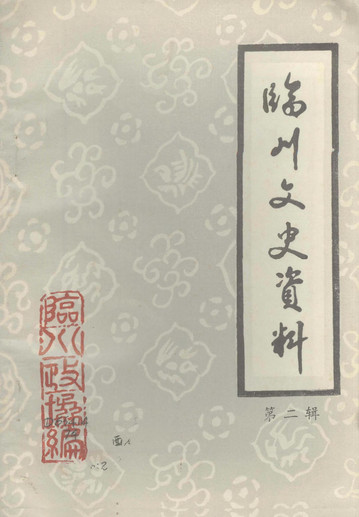 臨川文史資料
第二辑
臨川政協編